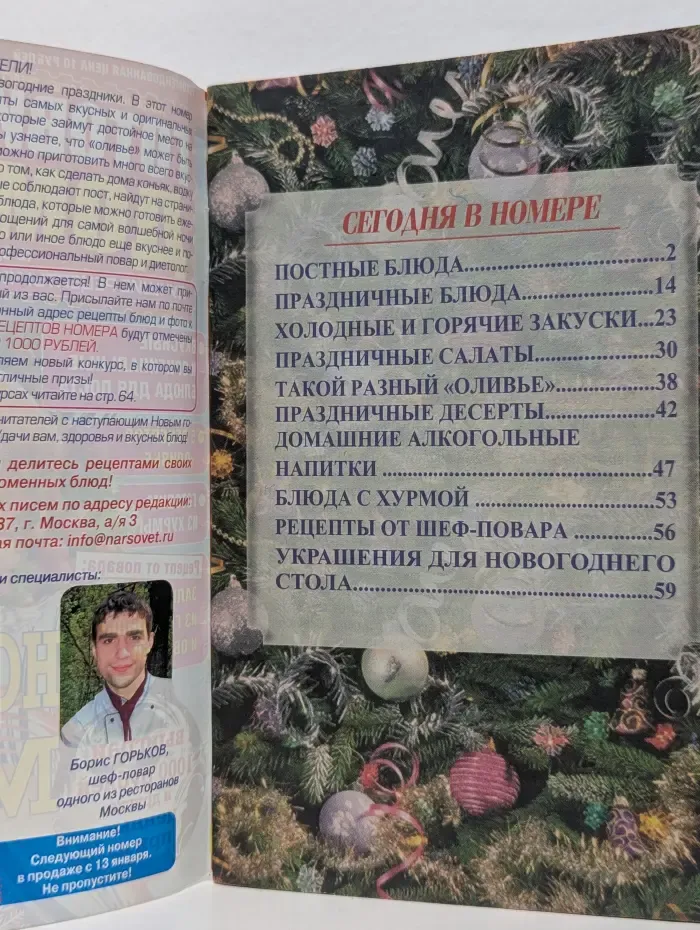 ЕЛИ!
овогодние праздники. В этот номер
ты самых вкусных и оригинальных
которые займут достойное место на
ы узнаете, что «оливье» может быть
можно приготовить много всего вкус-
о том, как сделать дома коньяк, водку
ые соблюдают пост, найдут на страни-
блюда, которые можно готовить еже-
ощений для самой волшебной ночи
о или иное блюдо еще вкуснее и по-
офессиональный повар и диетолог.
продолжается! В нем может при-
ый из вас. Присылайте нам по почте
нный адрес рецепты блюд и фото к
ЕЦЕПТОВ НОМЕРА будут отмечены
1000 РУБЛЕЙ.
ляем новый конкурс, в котором вы
тличные призы!
рсах читайте на стр. 64.
читателей с наступающим Новым го-
дачи вам, здоровья и вкусных блюд!
делитесь рецептами своих
оменных блюд!
х писем по адресу редакции:
37, г. Москва, а/я 3
ая почта: info@narsovet.ru
и специалисты:
Борис ГОРЬКОВ,
шеф-повар
одного из ресторанов
Москвы
Внимание!
Следующий номер
в продаже с 13 января.
Не пропустите!
СЕГОДНЯ В НОМЕРЕ
ПОСТНЫЕ БЛЮДА...2
ПРАЗДНИЧНЫЕ БЛЮДА...14
ХОЛОДНЫЕ И ГОРЯЧИЕ ЗАКУСКИ...23
ПРАЗДНИЧНЫЕ САЛАТЫ...30
ТАКОЙ РАЗНЫЙ «ОЛИВЬЕ»...38
ПРАЗДНИЧНЫЕ ДЕСЕРТЫ...42
ДОМАШНИЕ АЛКОГОЛЬНЫЕ
НАПИТКИ ...47
БЛЮДА С ХУРМОЙ ...53
РЕЦЕПТЫ ОТ ШЕФ-ПОВАРА ...56
УКРАШЕНИЯ ДЛЯ НОВОГОДНЕГО
СТОЛА...59